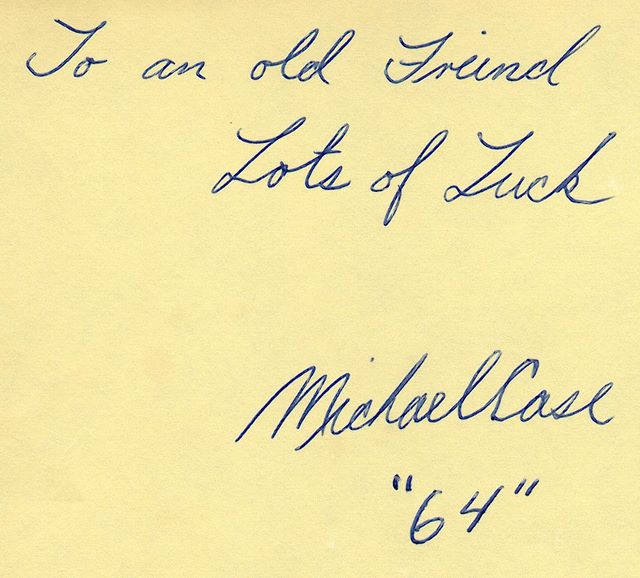 To an old Freind
Lots of Luck
Michael Case
"64"